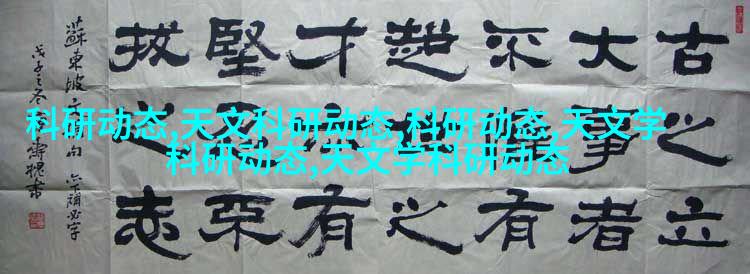 科研动态,天文科研动态,科研动态,天文学
科研动态,天文学科研动态
古之立
大事者
不有
超之
才有
堅不
拔之志
蘇東坡
戊子之冬